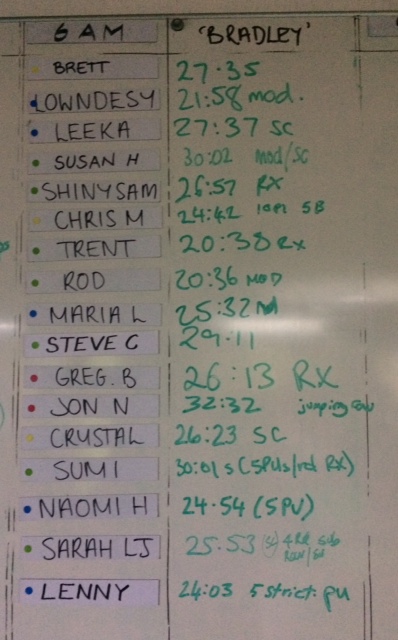 6 AM 'BRADLEY'
BRETT 27.35
LOWNDESY 21:58 mod.
LEEKA 27:37 SC
SUSAN H 30:02 mod/SC
SHINYSAM 26:57 RX
CHRIS M 24:42 SB
TRENT 20:38 Rx
ROD 20:36 MOD
MARIA L 25:32 M
STEVE C 29.11
GREG.B 26:13 RX
JON N 32:32 jumping
CRYSTAL 26:23 SC
SUMI 30:01 s (5PUs/rd RX)
NAOMI H 24.54 (5PU)
SARAH LJ 25.53
LENNY 24:03 5 strict pu